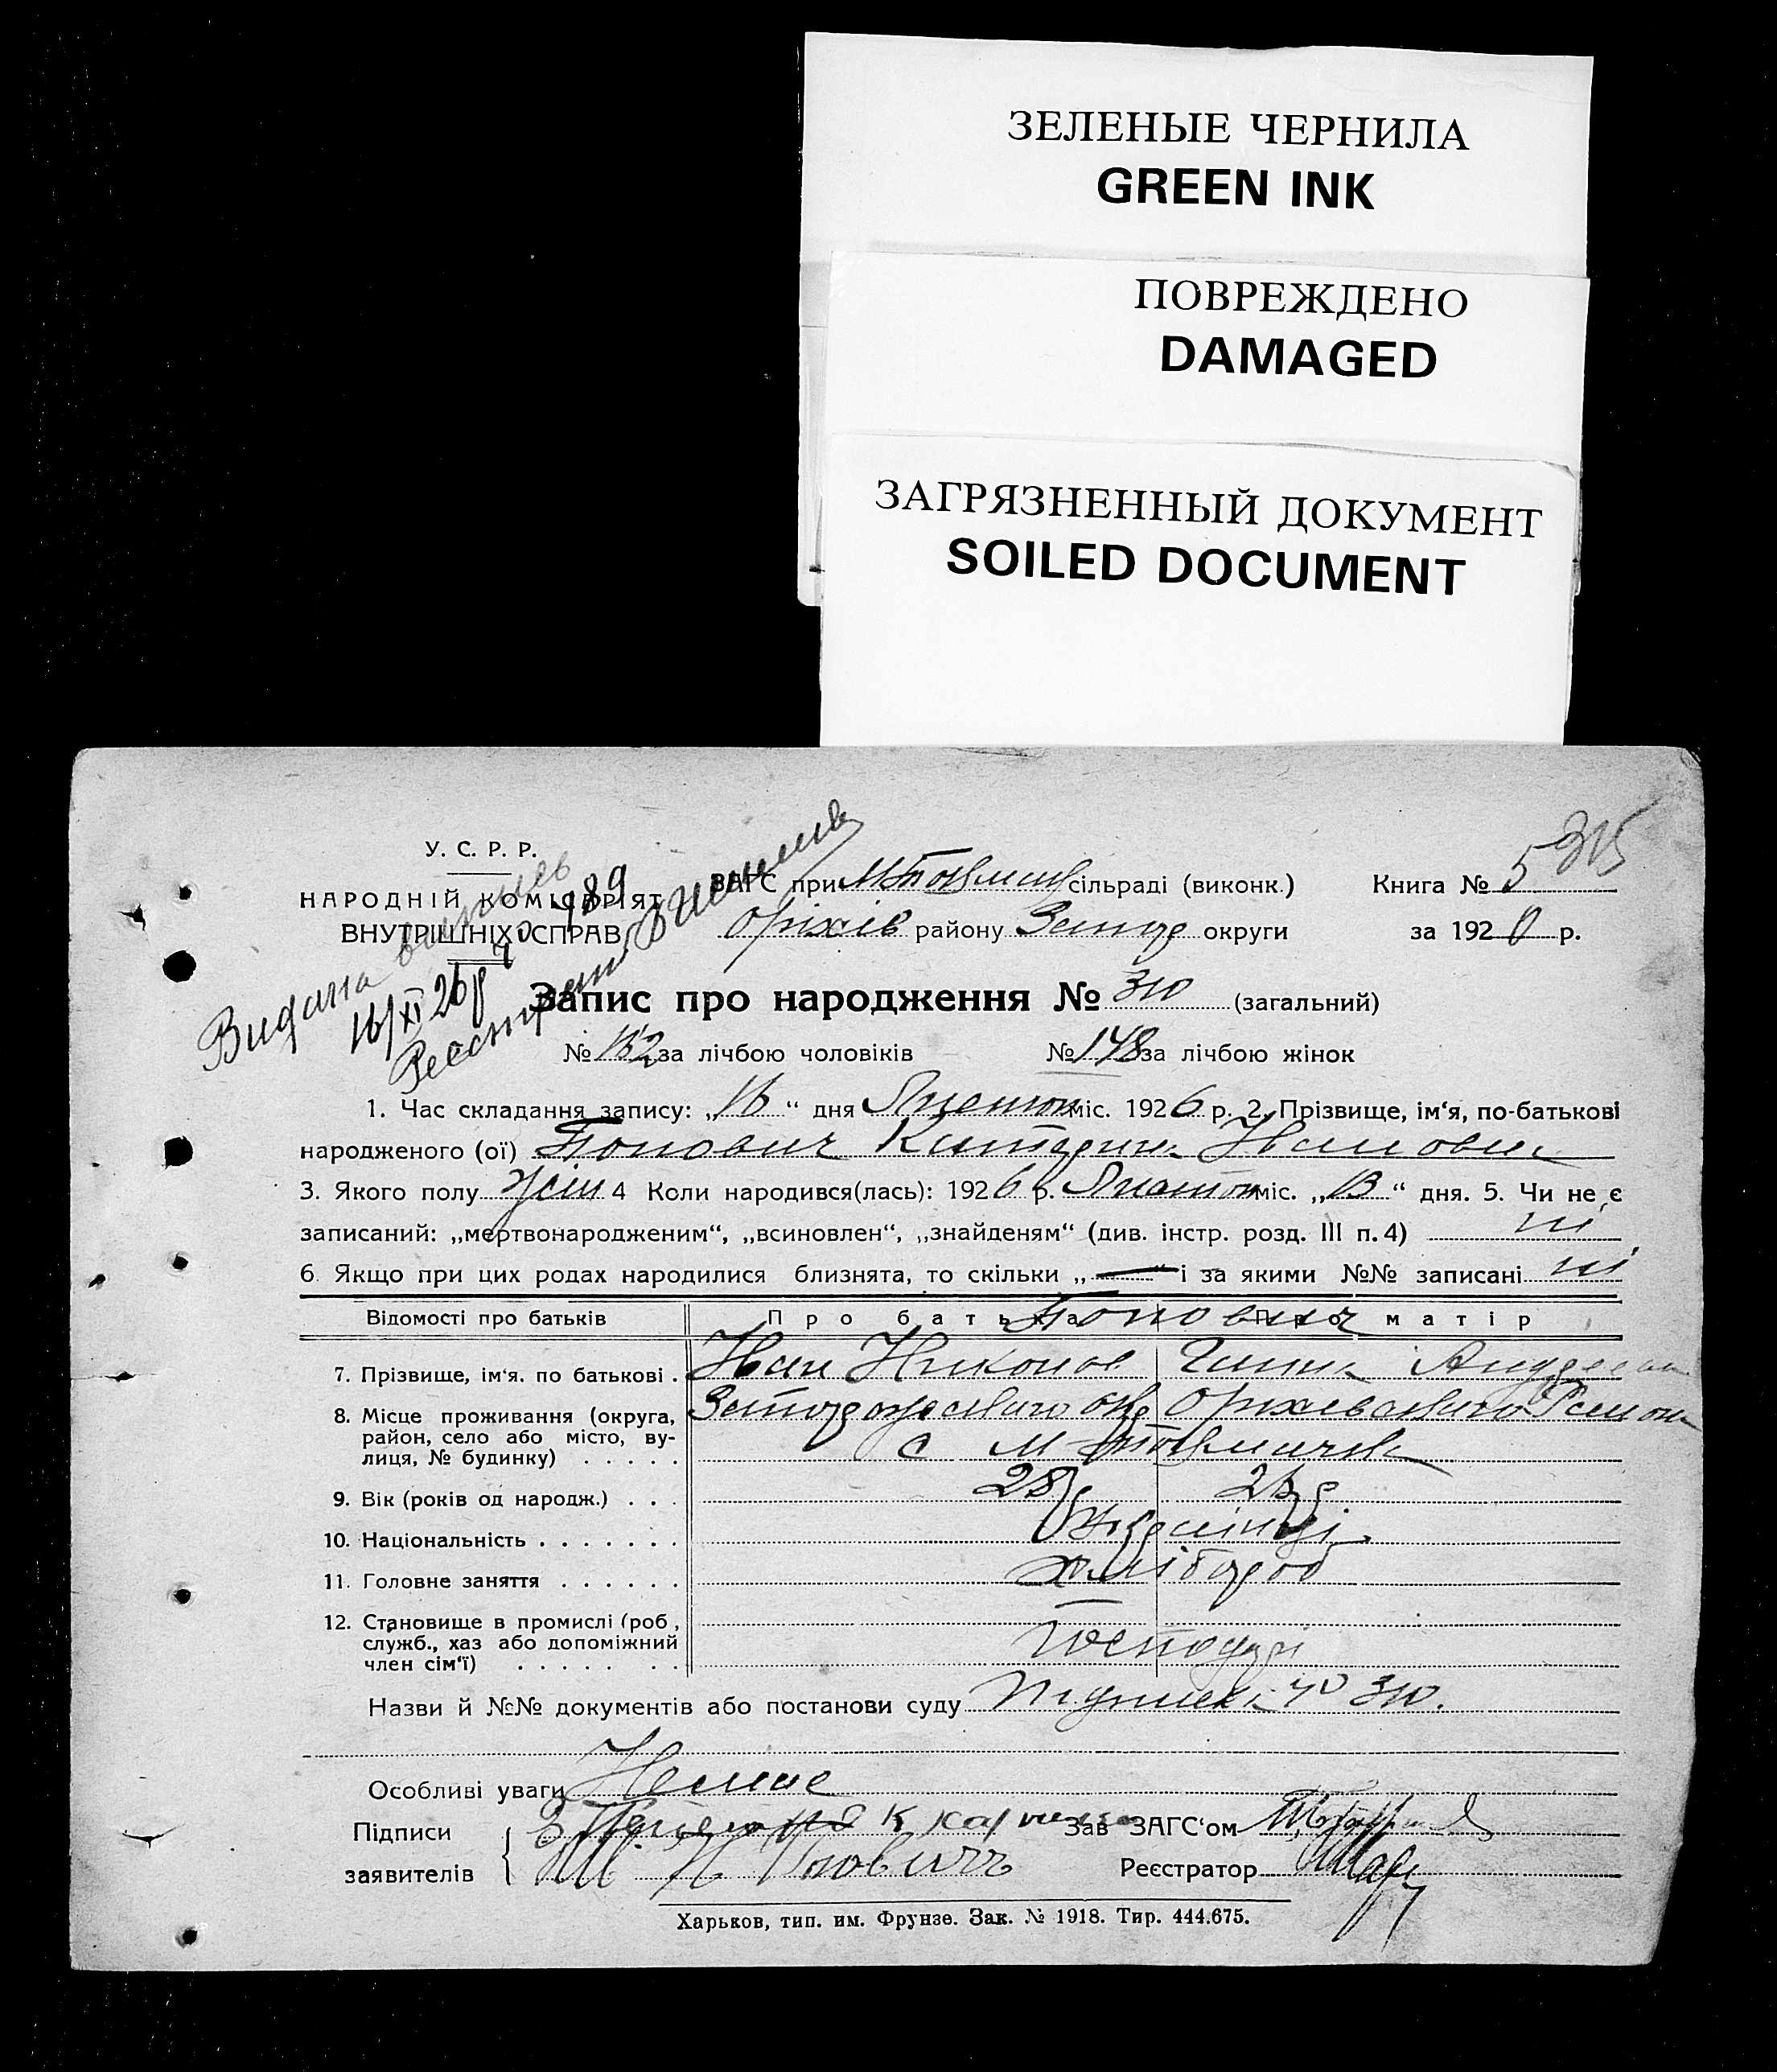 ЗЕЛЕНЫЕ ЧЕРНИЛА
GREEN INK
ПОВРЕЖДЕНО
DAMAGED
ЗАГРЯЗНЕННЫЙ ДОКУМЕНТ
SOILED DOCUMENT
315
У. С. Р. Р.
НАРОДНІЙ КОМІСАРІЯТ
ВНУТРІШНІХ СПРАВ
Видана
16/XI 26р № 489
ЗАГС при сільраді (виконк.) Книга № 5
Оріхів району Запор округи за 1920 р.
Запис про народження № 310 (загальний)
№ 152 за лічбою чоловіків № 148 за лічбою жінок
1. Час складання запису: „16“ дня міс. 1926 р. 2. Прізвище, ім‘я, по-батькові
народженого (ої) Попович Катерина Ивановна
3. Якого полу жін 4 Коли народився(лась): 1926 р. міс. „13“ дня. 5. Чи не є
записаний: „мертвонародженим“, „всиновлен“, „знайденям“ (див. інстр. розд. III п. 4) ні
6. Якщо при цих родах народилися близнята, то скільки „—“ і за якими №№ записані ні
Відомості про батьків Про батька Про матір
Попович
7. Прізвище, ім‘я. по батькові . Иван Никонов Ганна Андреевна
8. Місце проживання (округа, район, село або місто, вулиця, № будинку) . . . . . Запорожського окр Оріхівського Району
с М-Токмачка
9. Вік (років од народж.) . . . 28р 23р.
10. Національність . . . . . . . Українці
11. Головне заняття . . . . . . хлібороб
12. Становище в промислі (роб., служб., хаз або допоміжний член сім‘ї) . . . . . . . господарі
Назви й №№ документів або постанови суду № 310.
Особливі уваги Немае
Підписи
заявителів
И Попович
Зав ЗАГС‘ом
Реєстратор
Харьков, тип. им. Фрунзе. Зак. № 1918. Тир. 444.675.